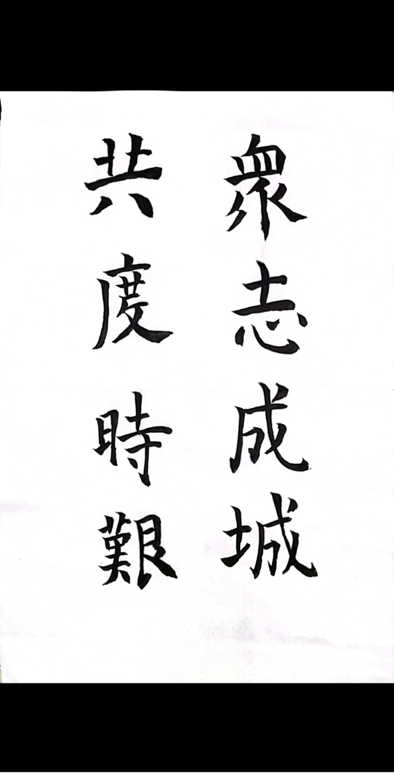 眾志成城
共度時艱